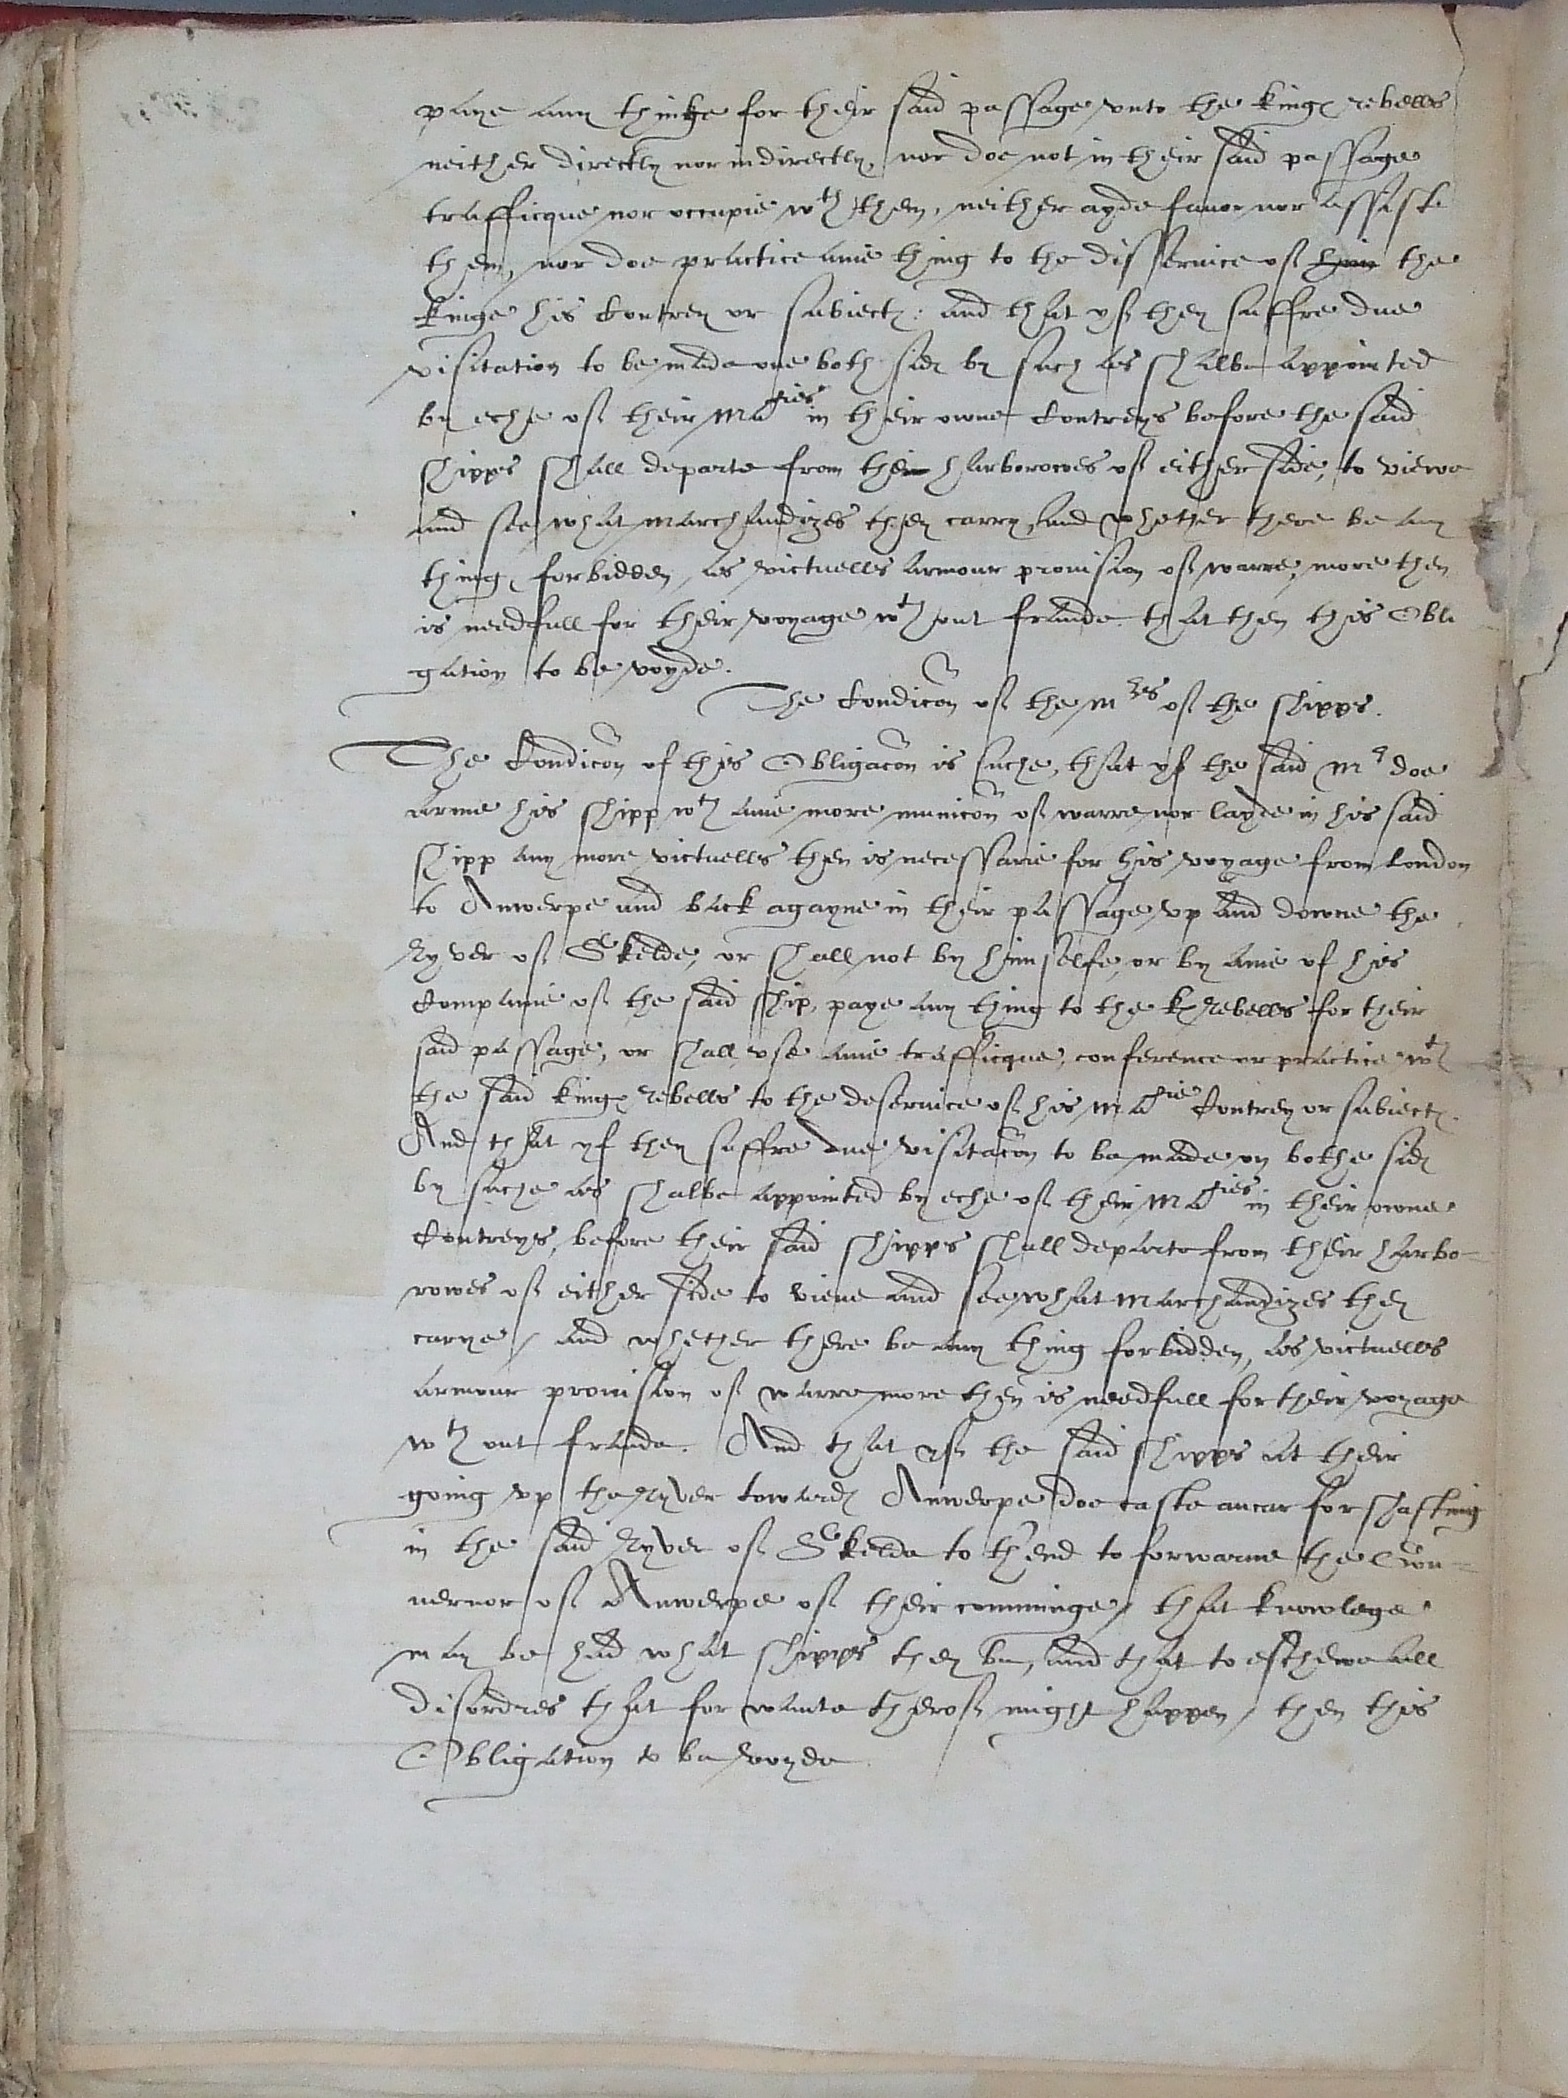 paye any thinge for their said passage vnto the kings rebells
neither directly nor indirectly, nor doe not in their said passage
trafficque nor occupie wth them, neither ayde fauor nor assiste
them, nor doe practice anie thing to the disseruice of the
kinge his Contrey or subiects: and that yf they suffre due
visitation to be made one both sids by such as shalbe appointed
by eche of their Maties in their owne Contreys before the said
shipps shall departe from their harborowes of either side, to viewe
and see what marchandizes they carry, and whether there be any
things forbidden, as victuells armour prouision of warre, more then
is needfull for their voyage wthout fraude. that then this Obli
gation to be voyde.
The Condicõn of the Mres of the shipps.
The Condicõn of this Obligacõn is suche, that yf the said Mr doe
arme his shipp wth anie more municõn of warre nor layde in his said
shipp any more victuells then is necessarie for his voyage from London
to Anwerpe and back agayne in their passage vp and downe the
Ryver of Skelde, or shall not by himselfe, or by anie of his
Companie of the said ship, paye any thing to the ks rebells for their
said passage, or shall vse anie trafficque, conference or practice wth
the said kings rebells to the deseruice of his Matie Contrey or subiects.
And that yf they suffre due visitacõn to be made on bothe sids
by suche as shalbe appointed by eche of their Maties in their owne
Contreys, before their said shipps shall departe from their harbo-
rowes of either side to viewe and see what marchandizes they
carye, and whether there be any thing forbidden, as victuells
armour prouision of warre more then is needfull for their voyage
wthout fraude. And that yf the said shipps at their
going vp the ryver towards Anwerpe doe caste ancar
in the said Ryver of Skelde to th'end to forwarne the Gou-
uernor of Anwerpe of their comminge, that knowlege
may be had what shipps they be, and that to eschewe all
disordres that for wante therof might happen, then this
Obligation to be voyde.